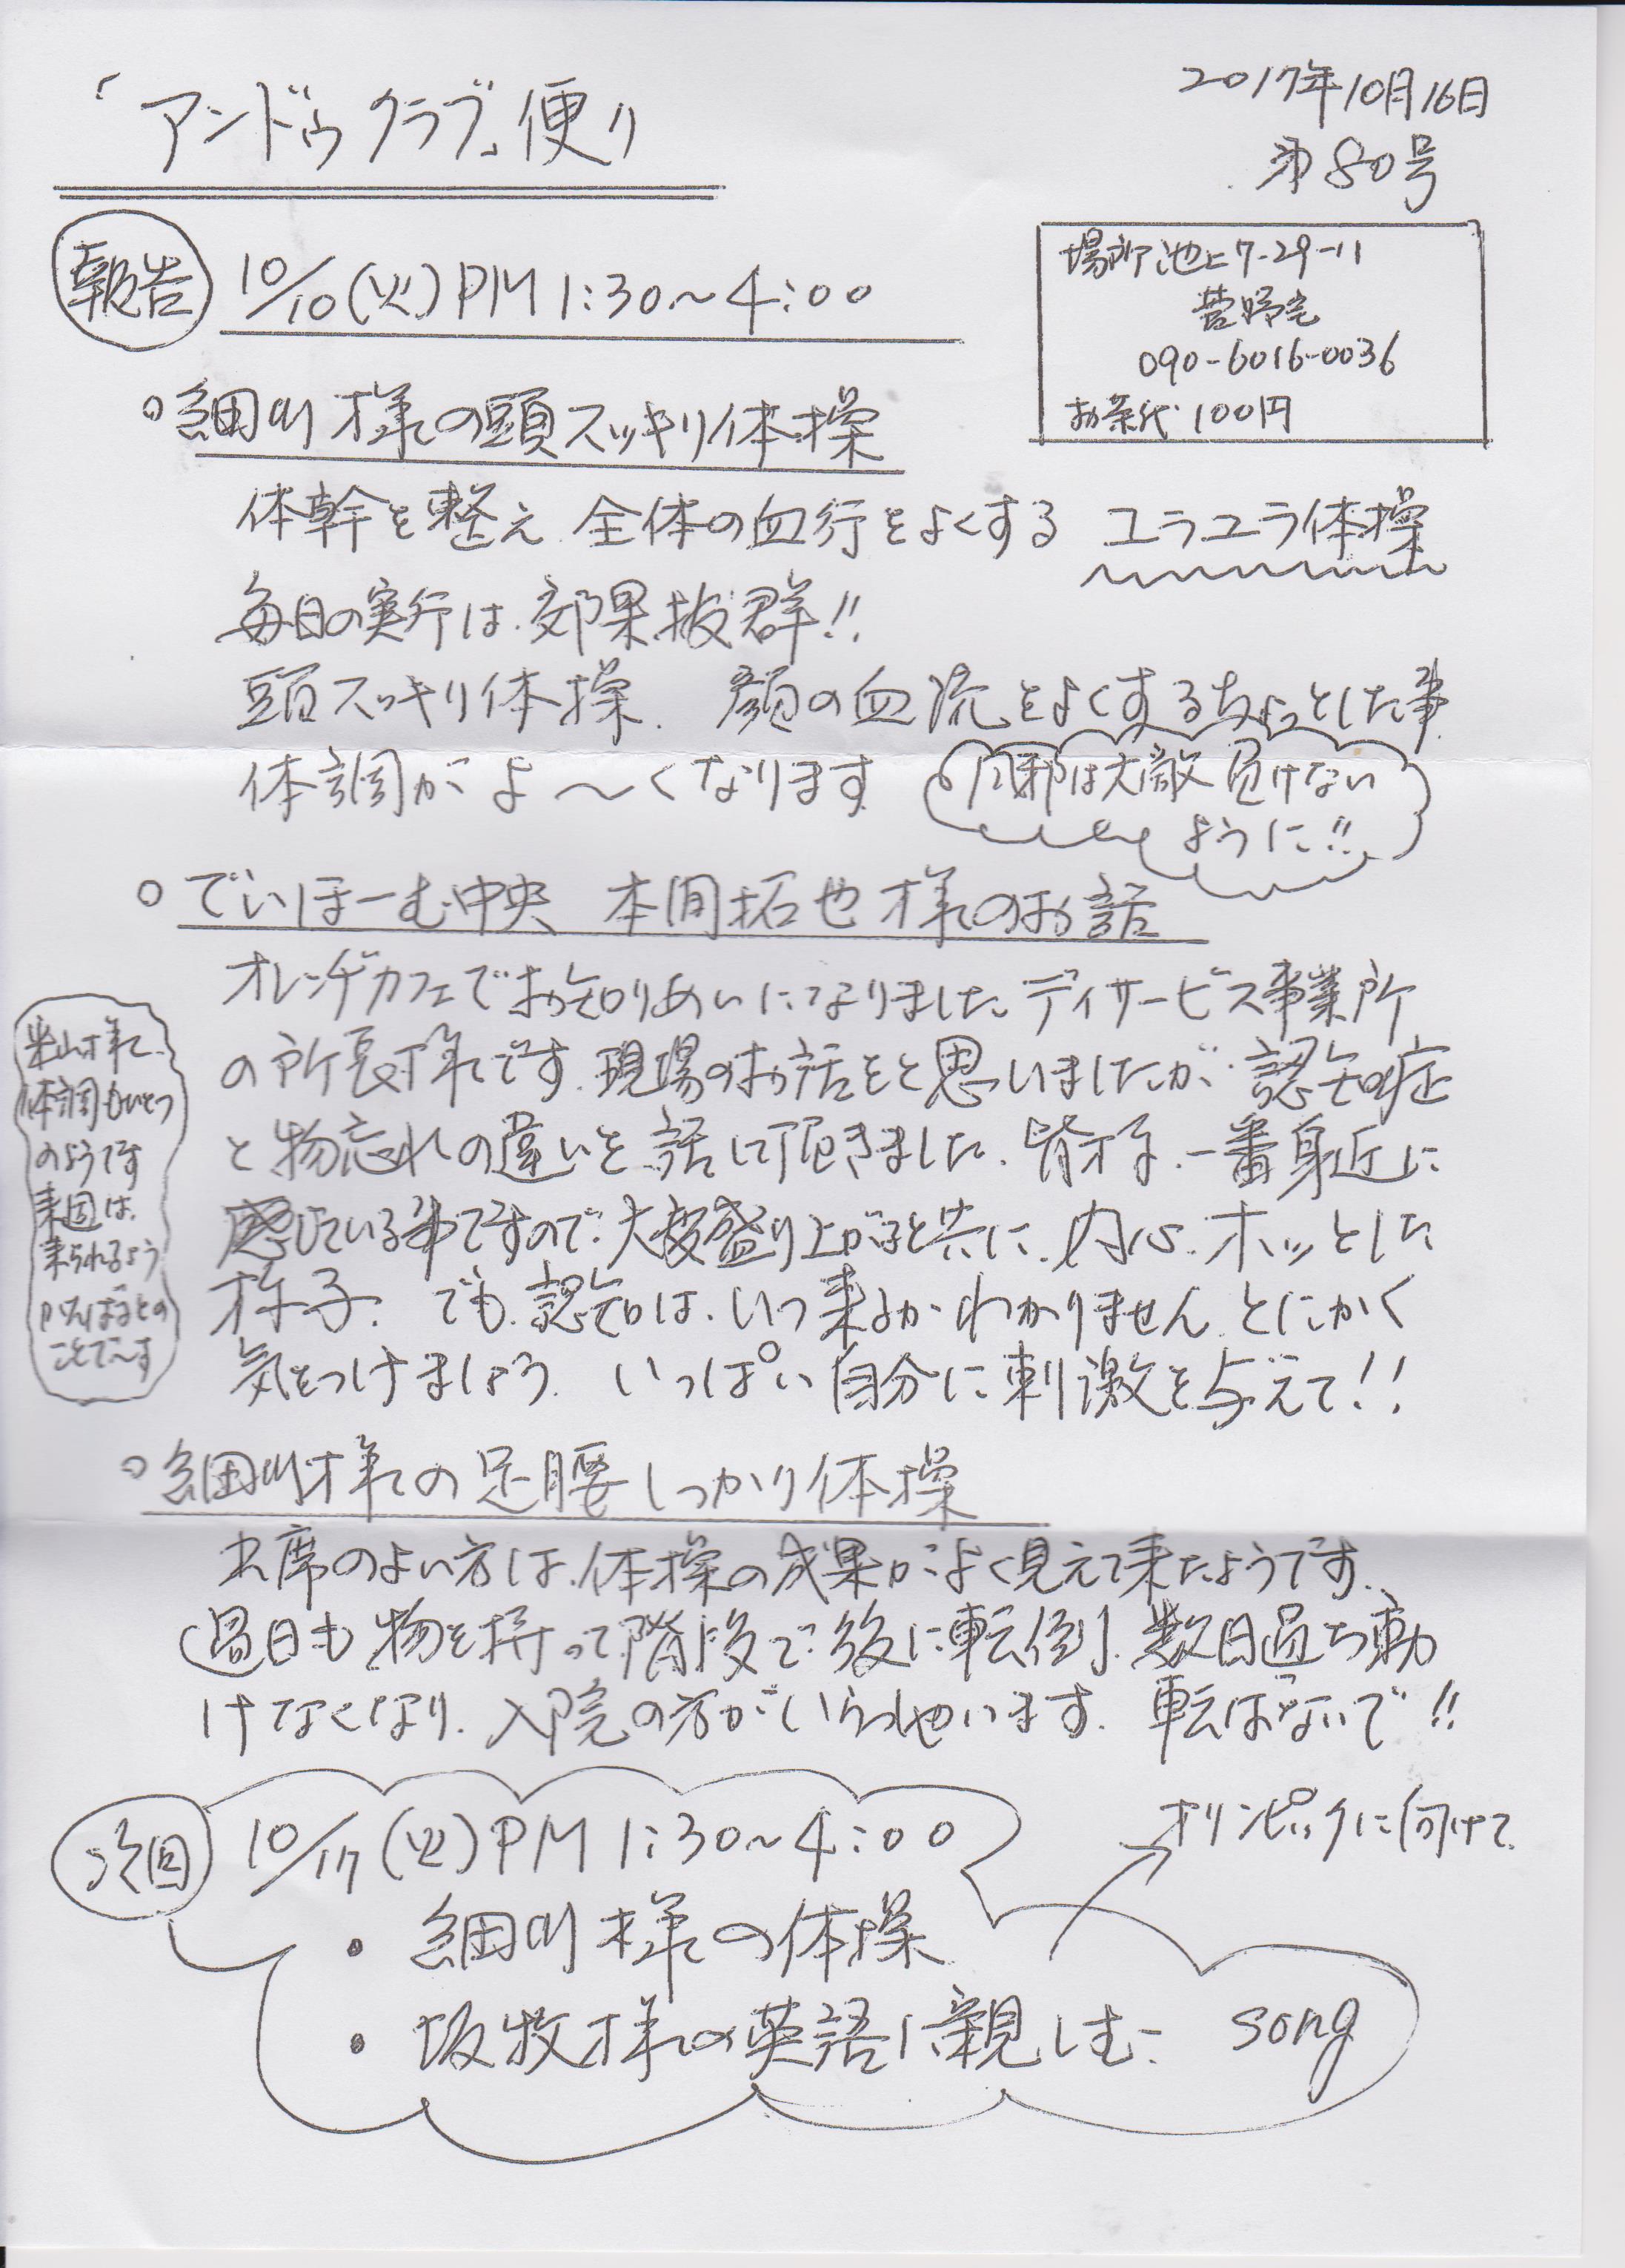 「アンドゥクラブ」便り
2017年10月16日
第80号
場所 池上7-29-11
菅野宅
090-6016-0036
お茶代 100円
報告 10/10(火)PM1:30〜4:00
○細川様の頭スッキリ体操
体幹を整え 全体の血行をよくする ユラユラ体操
毎日の実行は、効果抜群!!
頭スッキリ体操、顔の血流をよくするちょっとした事
体調がよ〜くなります
風邪は大敵 負けない
ように!!
○でいほーむ中央 本間拓也様のお話
オレンヂカフェでお知りあいになりました。デイサービス事業所
の所長様です。現場のお話をと思いましたが、認知症
と物忘れの違いを話して頂きました。皆様、一番身近に
感じている事ですので、大変盛り上がると共に、内心、ホッとした
様子。でも、認知は、いつ来るか、わかりません。とにかく
気をつけましょう。いっぱい自分に刺激を与えて!!
米山様、
体調もいまつ
のようです
来週は、
来られるよう
がんばるとの
ことで〜す
○細川様の足腰しっかり体操
出席のよい方は、体操の成果がよく見えて来たようです。
過日も物を持って階段で後に転倒、数日過ち動
けなくなり、入院の方がいらっしゃいます。転ばないで!!
次回 10/17(火)PM1:30〜4:00
オリンピックに向けて
・細川様の体操
・坂牧様の英語に親しむ song